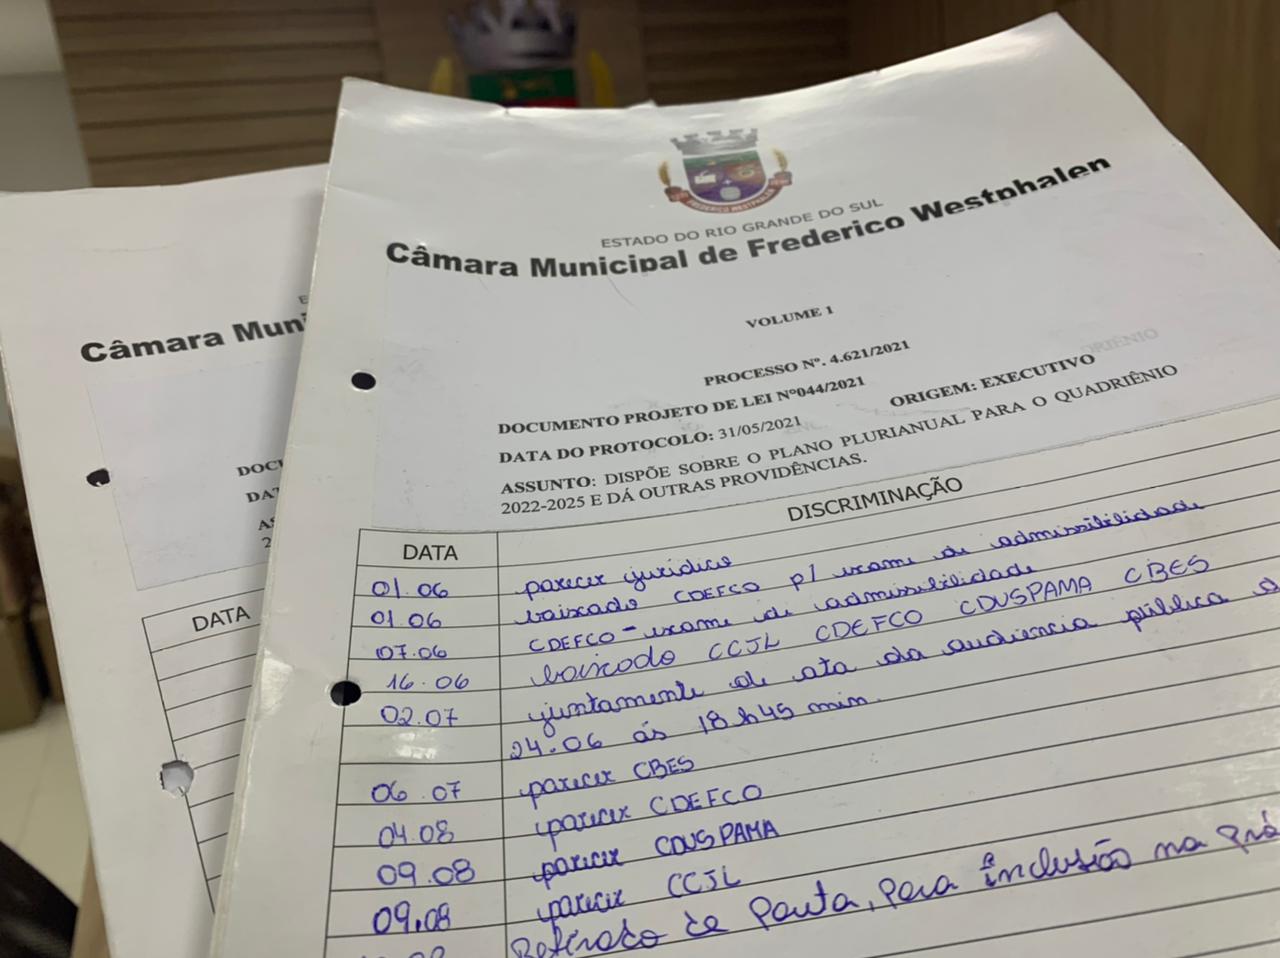 FREDERICO WESTPHALEN
ESTADO DO RIO GRANDE DO SUL
Câmara Municipal de Frederico Westphalen
VOLUME 1
PROCESSO Nº. 4.621/2021
DOCUMENTO PROJETO DE LEI Nº044/2021
ORIGEM: EXECUTIVO
DATA DO PROTOCOLO: 31/05/2021
ASSUNTO: DISPÕE SOBRE O PLANO PLURIANUAL PARA O QUADRIÊNIO
2022-2025 E DÁ OUTRAS PROVIDÊNCIAS.
DATA DISCRIMINAÇÃO
01.06 parecer jurídico
01.06 baixado CDEFCO p/ exame de admissibilidade
07.06 CDEFCO - exame de admissibilidade
16.06 baixado CCJL CDEFCO CDUSPAMA CBES
02.07 juntamente de ata da audiencia pública d
24.06 ás 18h45 min.
06.07 parecer CBES
04.08 parecer CDEFCO
09.08 parecer CDUSPAMA
09.08 parecer CCJL
Retirado de Pauta, para inclusão na pró
Câmara Muni
DOCU
DAT
AS
2
DATA